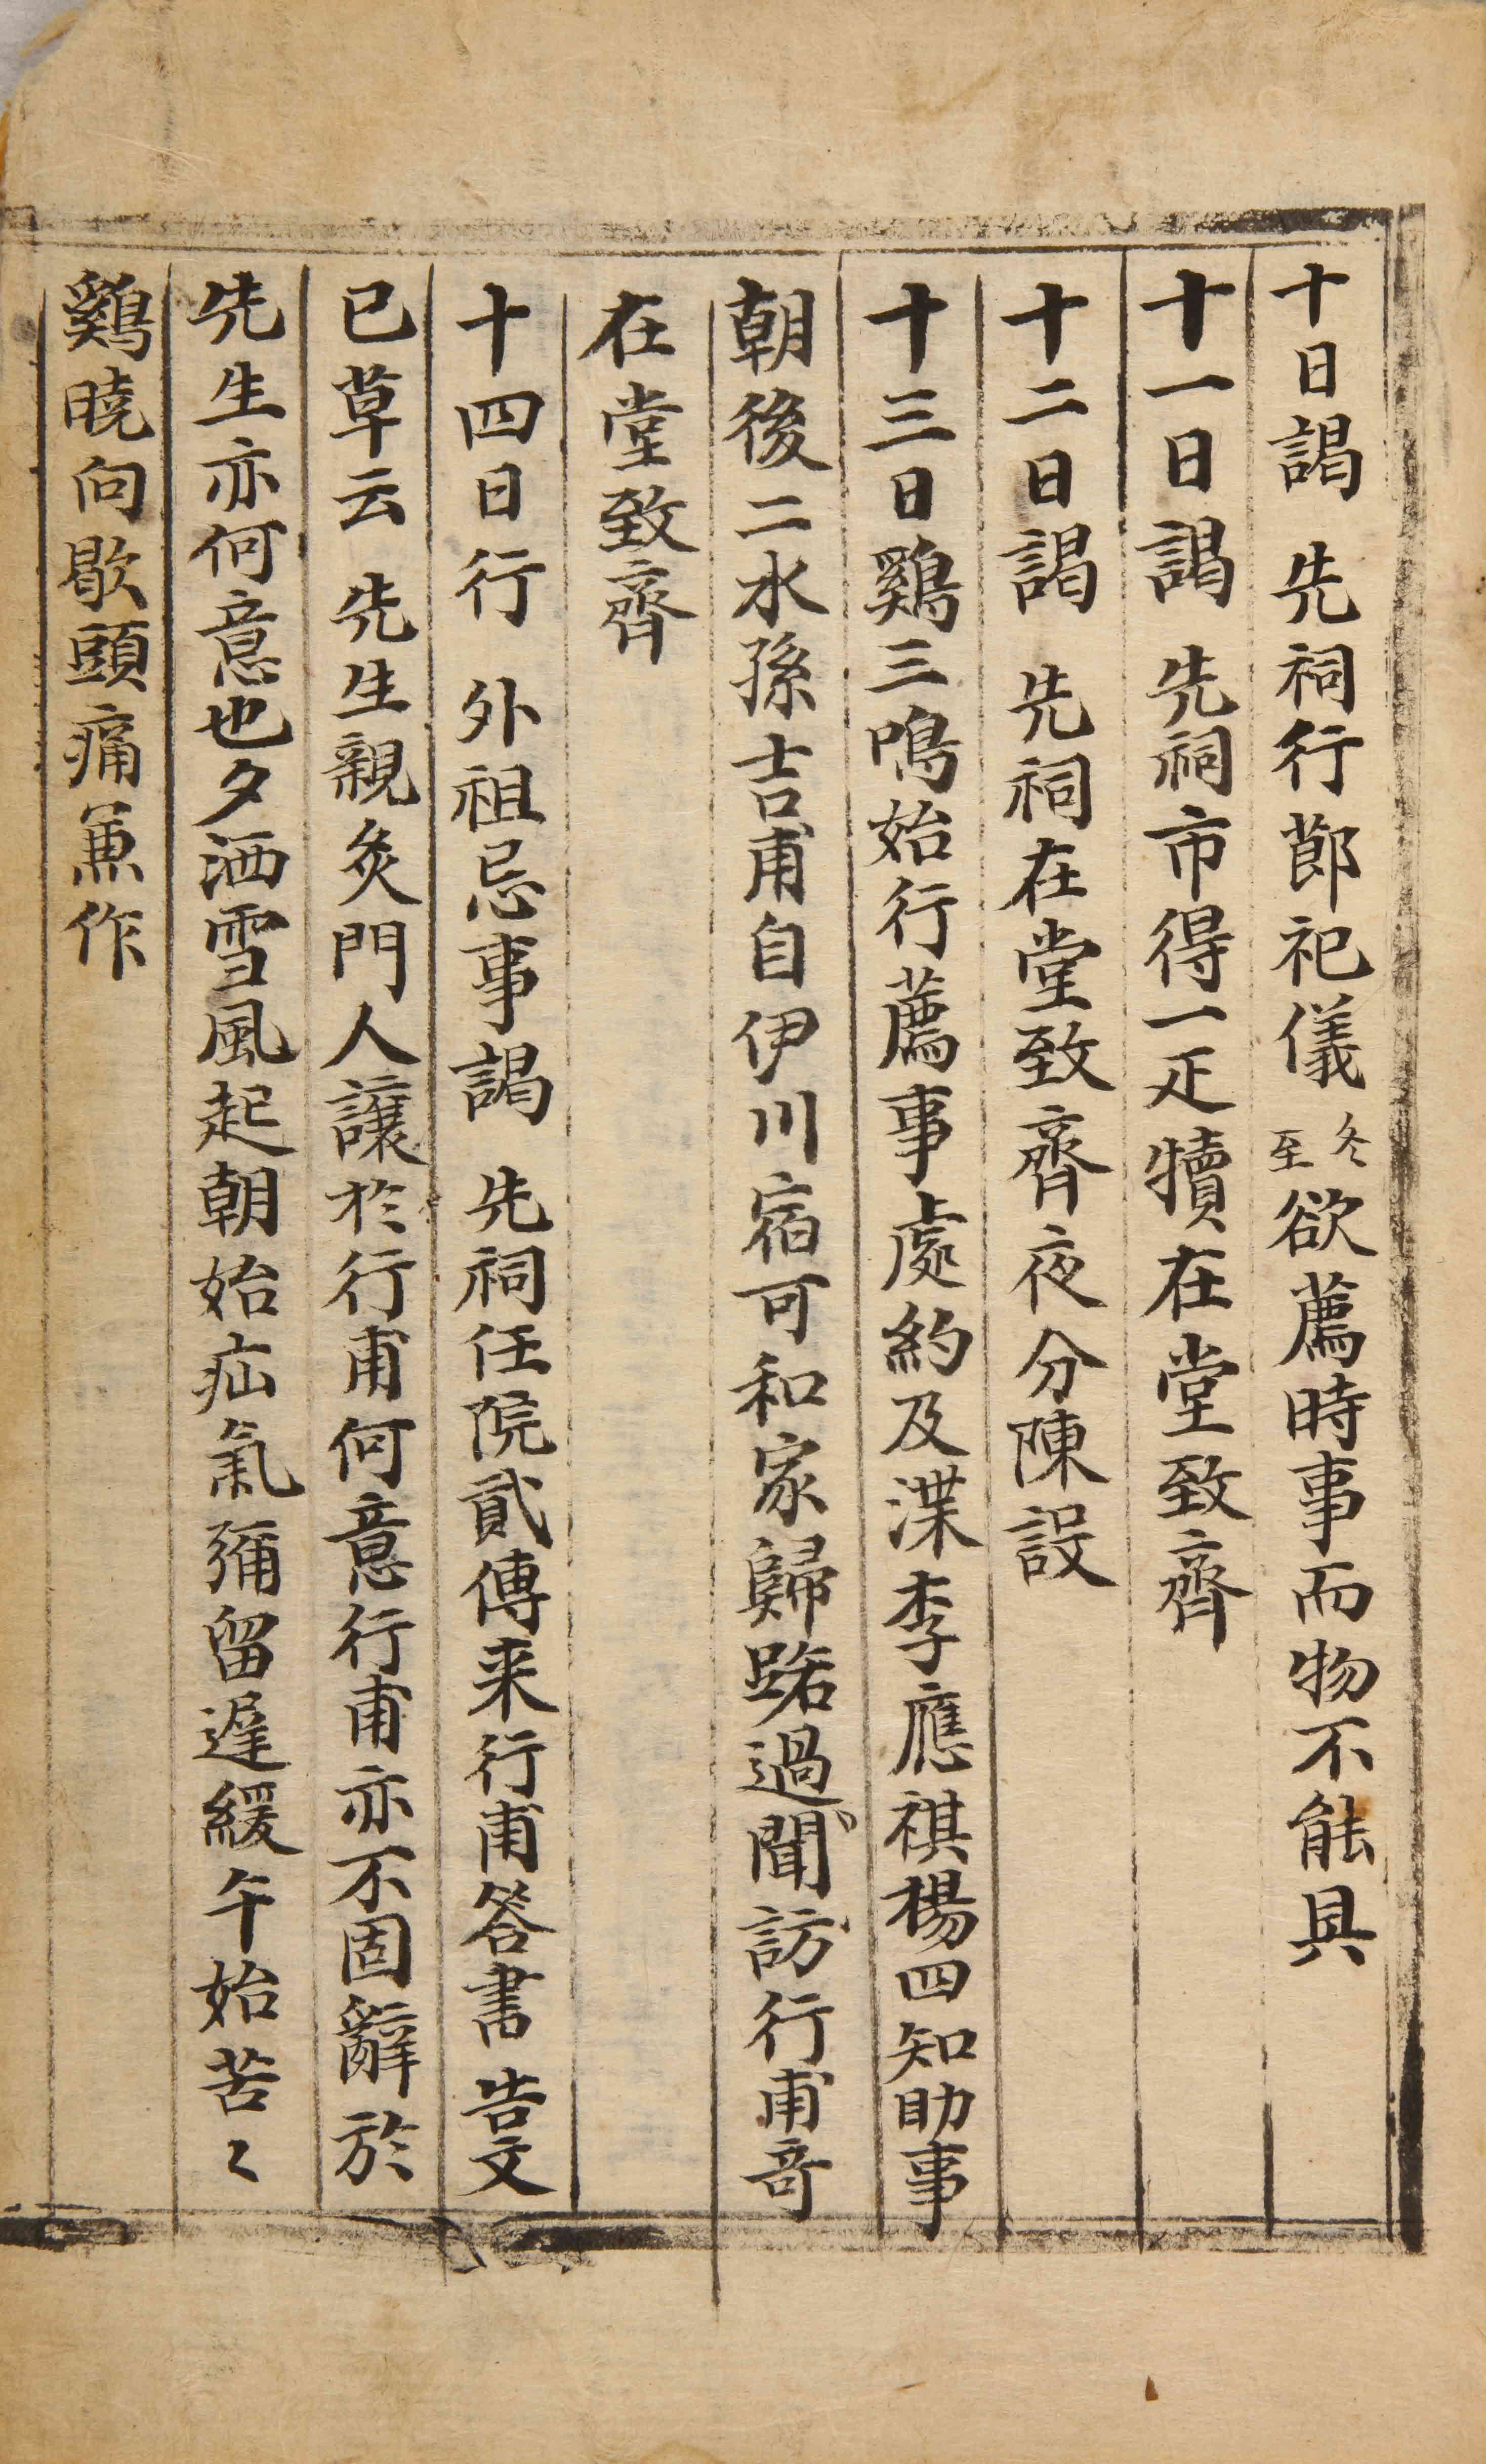 十日謁 先祠行節祀儀冬至欲薦時事而物不能具
十一日謁 先祠市得一疋犢在堂致齊
十二日謁 先祠在堂致齊夜分陳設
十三日鷄三鳴始行薦事處約及渫李應祺楊四知助事
朝後二水孫吉甫自伊川宿可和家歸路過聞訪行甫哥
在堂致齊
十四日行 外祖忌事謁 先祠任院貳傳来行甫答書告文
已草云 先生親炙門人讓於行甫何意行甫亦不固辭於
先生亦何意也夕洒雪風起朝始疝氣彌留遅緩午始苦〻
鷄曉向歇頭痛兼作